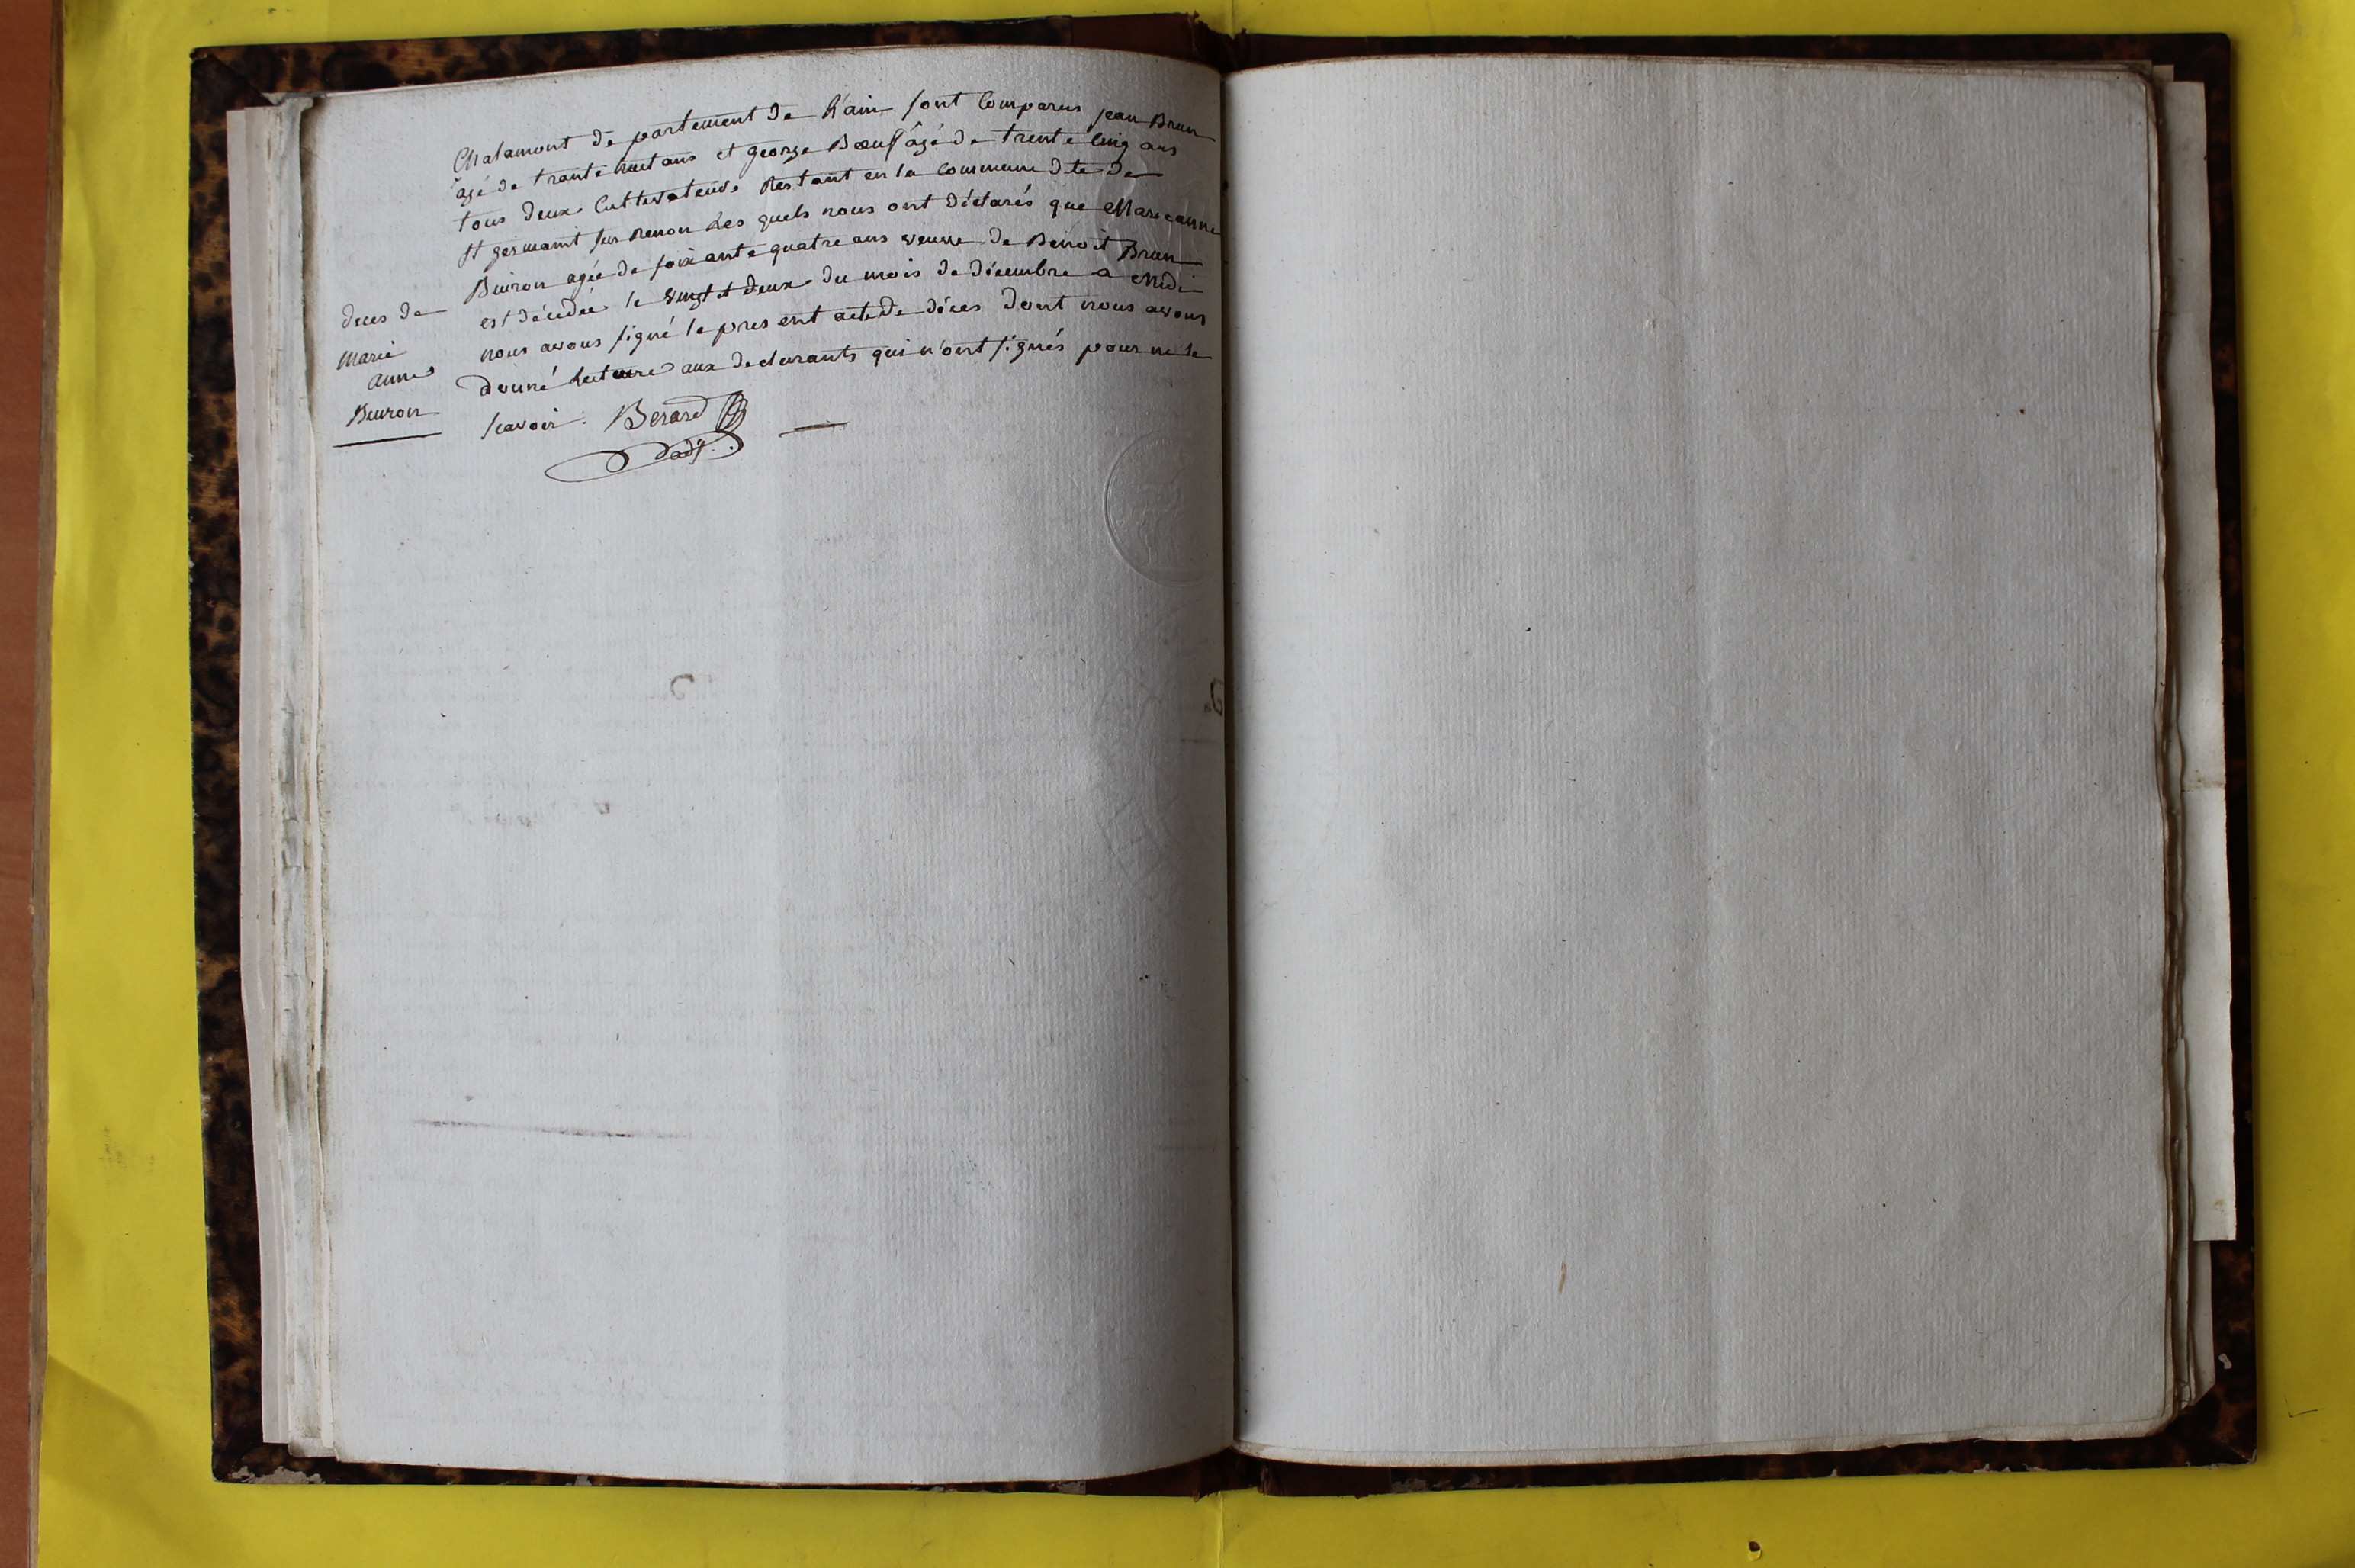 Chatamont de partement de L'ain sont Comparus jean Brun
agé de trante huit ans et george Bœuf âgé de trente cinq ans
tous deux Cultivateurs Restant en la Commune dite de
st germaint sur Renon Les quels nous ont déclarés que Marie anne
Buiron agée de soixante quatre ans veuve de Benoit Brun
est décédée le vingt et deux du mois de décembre a Midi
nous avons signé le present acte de déces dont nous avons
donné Lecture aux declarants qui n'ont signés pour ne le
scavoir. Berard
adj.
deces de
marie
anne
Buiron